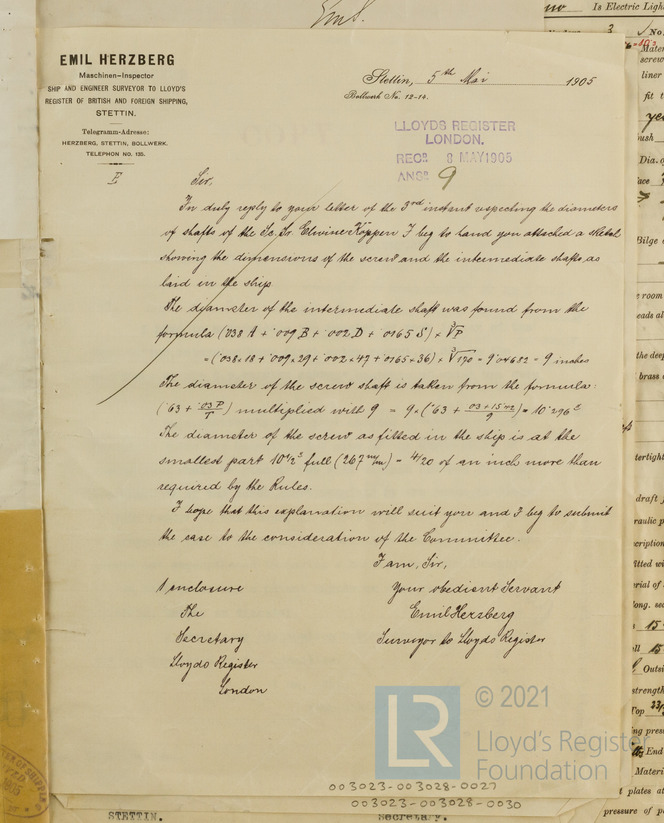 EMIL HERZBERG
Maschinen-Inspector
SHIP AND ENGINEER SURVEYOR TO LLOYD'S
REGISTER OF BRITISH AND FOREIGN SHIPPING,
STETTIN.
Telegramm-Adresse:
HERZBERG, STETTIN, BOLLWERK.
TELEPHON NO. 135.
E
Stettin, 5th Mai 1905
Bollwerk No. 12-14.
LLOYDS REGISTER
LONDON.
RECD. 8 MAY 1905
ANSD. 9
Sir,
In duly reply to your letter of the 3rd instant respecting the diameters
of shafts of the Sc. Sr. Elwine Köppen I beg to hand you attached a sketch
showing the dimensions of the screw and the intermediate shafts, as
laid in the ship.
The diameter of the intermediate shaft was found from the
formula (·038 A + ·009 B + ·002 D + ·0165 S) × ∛P
= (·038×18 + ·009×29 + ·002×47 + ·0165×36) × ∛170 = 9·04682 = 9 inches
The diameter of the screw shaft is taken from the formula:
(·63 + ·03P/T) multiplied with 9 = 9×(·63 + = 10·296"
The diameter of the screw as fitted in the ship is at the
smallest part 10½" full (267 m/m) = 4/20 of an inch more than
required by the Rules.
I hope that this explanation will suit you and I beg to submit
the case to the consideration of the Committee.
I am, Sir,
1 enclosure
Your obedient Servant
The
Emil Herzberg
Secretary
Surveyor to Lloyds Register
Lloyds Register
London
LR
© 2021
Lloyd's Register
Foundation
003023-003028-0027
003023-003028-0030
STETTIN.
Secretary.
Is Electric Light